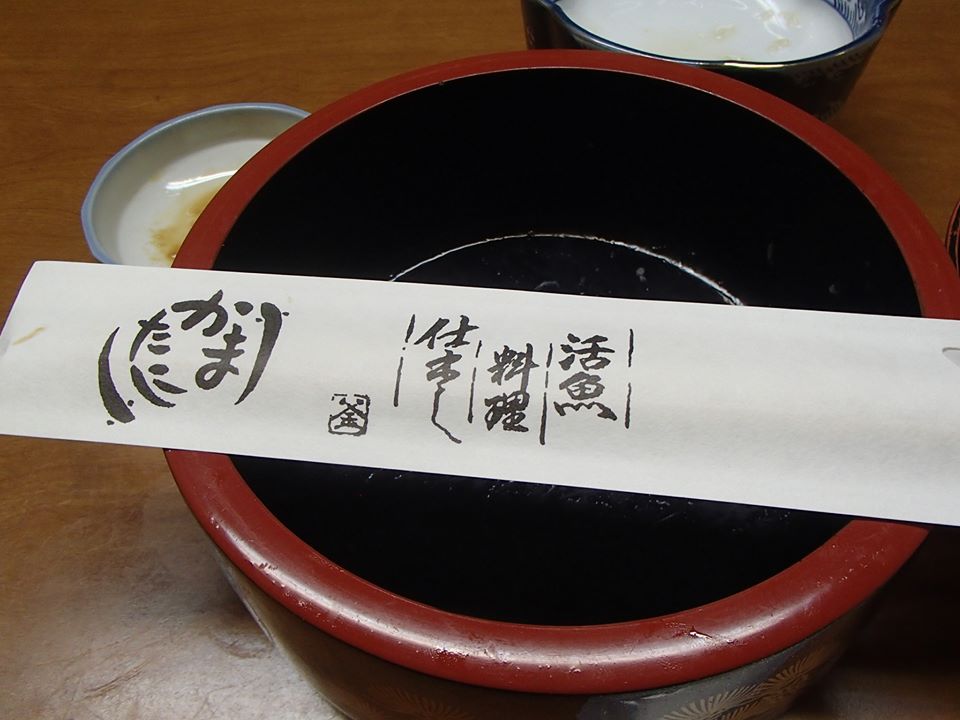 活魚
料理
仕出し
かま
たに
釜